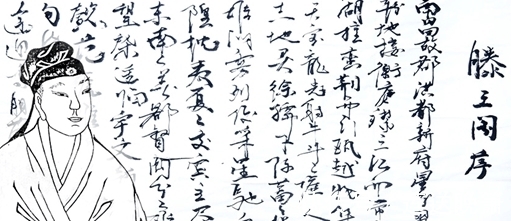 滕王阁序
南昌故郡洪都新府星分翼
轸地接衡庐襟三江而带
湖控蛮荆而引瓯越物华
天宝龙光射牛斗之墟人
杰地灵徐孺下陈蕃
雄州雾列俊采星驰台
隍枕夷夏之交宾主尽
东南之美都督阎公之雅
望棨戟遥临宇文
懿范